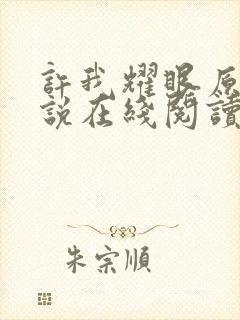 許我耀眼原
說在綫閱讀
朱宗順